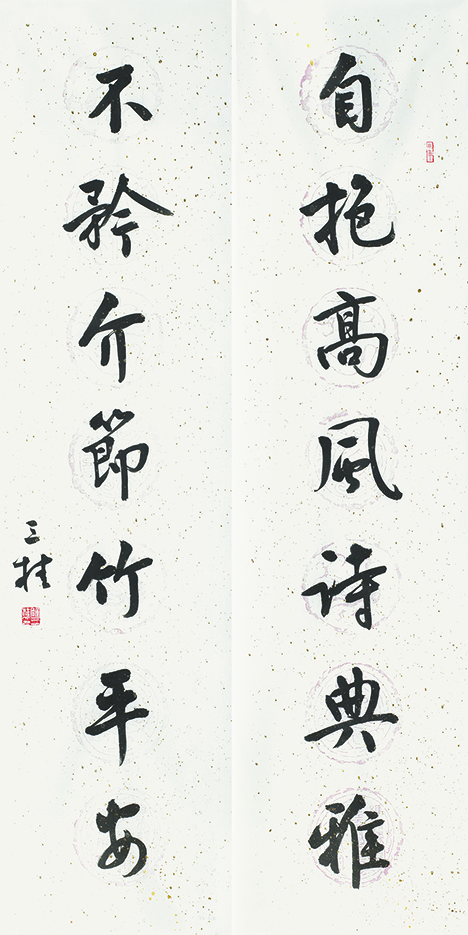 自抱高風诗典雅
不矜介節竹平安
三桂